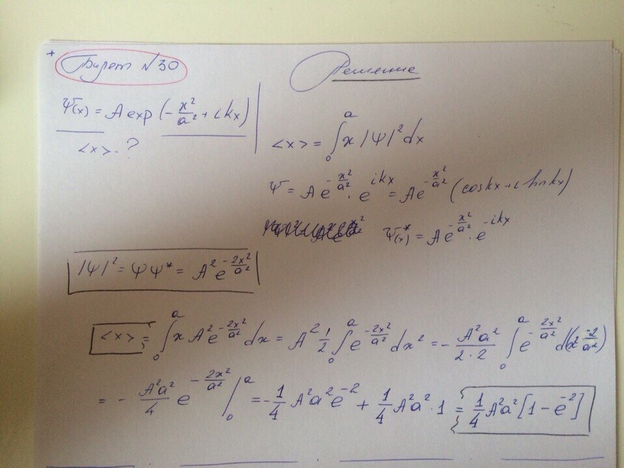 Билет №30
Решение
Ψ(x) = A exp(-x²/a² + ikx)
<x> - ?
<x> = ∫₀ᵃ x |Ψ|² dx
Ψ = A e^(-x²/a²) · e^(ikx) = A e^(-x²/a²) (cos kx + i sin kx)
Ψ(x)* = A e^(-x²/a²) · e^(-ikx)
|Ψ|² = ΨΨ* = A² e^(-2x²/a²)
<x> = ∫₀ᵃ x A² e^(-2x²/a²) dx = A² 1/2 ∫₀ᵃ e^(-2x²/a²) dx² = - A²a²/(2·2) ∫₀ᵃ e^(-2x²/a²) d(x² · -2/a²)
= - A²a²/4 e^(-2x²/a²) |₀ᵃ = -1/4 A²a² e^(-2) + 1/4 A²a² · 1 = 1/4 A²a² [1 - e^(-2)]